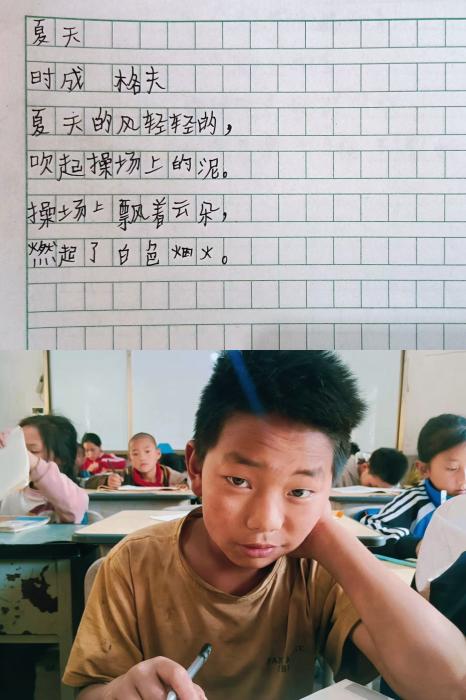 夏天
时成 格夫
夏天的风轻轻的，
吹起操场上的泥。
操场上飘着云朵，
燃起了白色烟火。